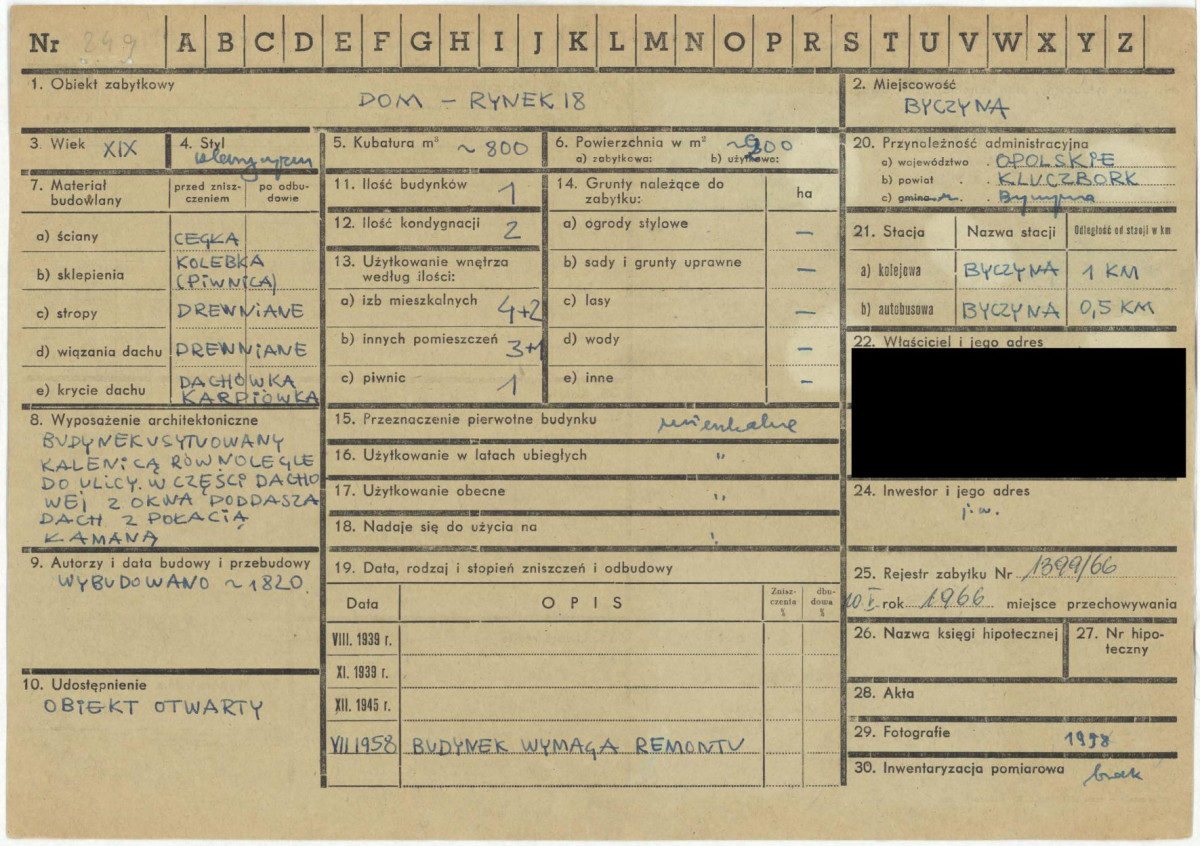 Nr 849 A B C D E F G H I J K L M N O P R S T U V W X Y Z
1. Obiekt zabytkowy
DOM – RYNEK 18
2. Miejscowość
BYCZYNA
3. Wiek XIX
4. Styl
klasycyzm
5. Kubatura m³ ~ 800
6. Powierzchnia w m²
a) zabytkowa: b) użytkowo:
7. Materiał budowlany
przed zniszczeniem
po odbudowie
a) ściany CEGŁA
b) sklepienia KOLEBKA (PIWNICA)
c) stropy DREWNIANE
d) wiązania dachu DREWNIANE
e) krycie dachu DACHÓWKA KARPIÓWKA
8. Wyposażenie architektoniczne
BUDYNEK USYTUOWANY
KALENICĄ RÓWNOLEGLE
DO ULICY. W CZĘŚCI DACHO
WEJ 2 OKNA PODDASZA
DACH Z POŁACIĄ
ŁAMANĄ
9. Autorzy i data budowy i przebudowy
WYBUDOWANO ~ 1820.
10. Udostępnienie
OBIEKT OTWARTY
11. Ilość budynków 1
12. Ilość kondygnacji 2
13. Użytkowanie wnętrza
według ilości:
a) izb mieszkalnych 4+2
b) innych pomieszczeń 3+1
c) piwnic 1
14. Grunty należące do
zabytku:
ha
a) ogrody stylowe –
b) sady i grunty uprawne –
c) lasy –
d) wody –
e) inne –
15. Przeznaczenie pierwotne budynku mieszkalne
16. Użytkowanie w latach ubiegłych "
17. Użytkowanie obecne "
18. Nadaje się do użycia na "
19. Data, rodzaj i stopień zniszczeń i odbudowy
Data OPIS Zniszczenie % dbudowa %
VIII. 1939 r.
XI. 1939 r.
XII. 1945 r.
VII 1958 BUDYNEK WYMAGA REMONTU
20. Przynależność administracyjna
a) województwo . OPOLSKIE
b) powiat . . KLUCZBORK
c) gmina m. Byczyna
21. Stacja Nazwa stacji Odległość od stacji w km
a) kolejowa BYCZYNA 1 KM
b) autobusowa BYCZYNA 0,5 KM
22. Właściciel i jego adres
24. Inwestor i jego adres
j.w.
25. Rejestr zabytku Nr 1399/66
10.I. rok 1966 miejsce przechowywania
26. Nazwa księgi hipotecznej
27. Nr hipoteczny
28. Akta
29. Fotografie 1958
30. Inwentaryzacja pomiarowa brak